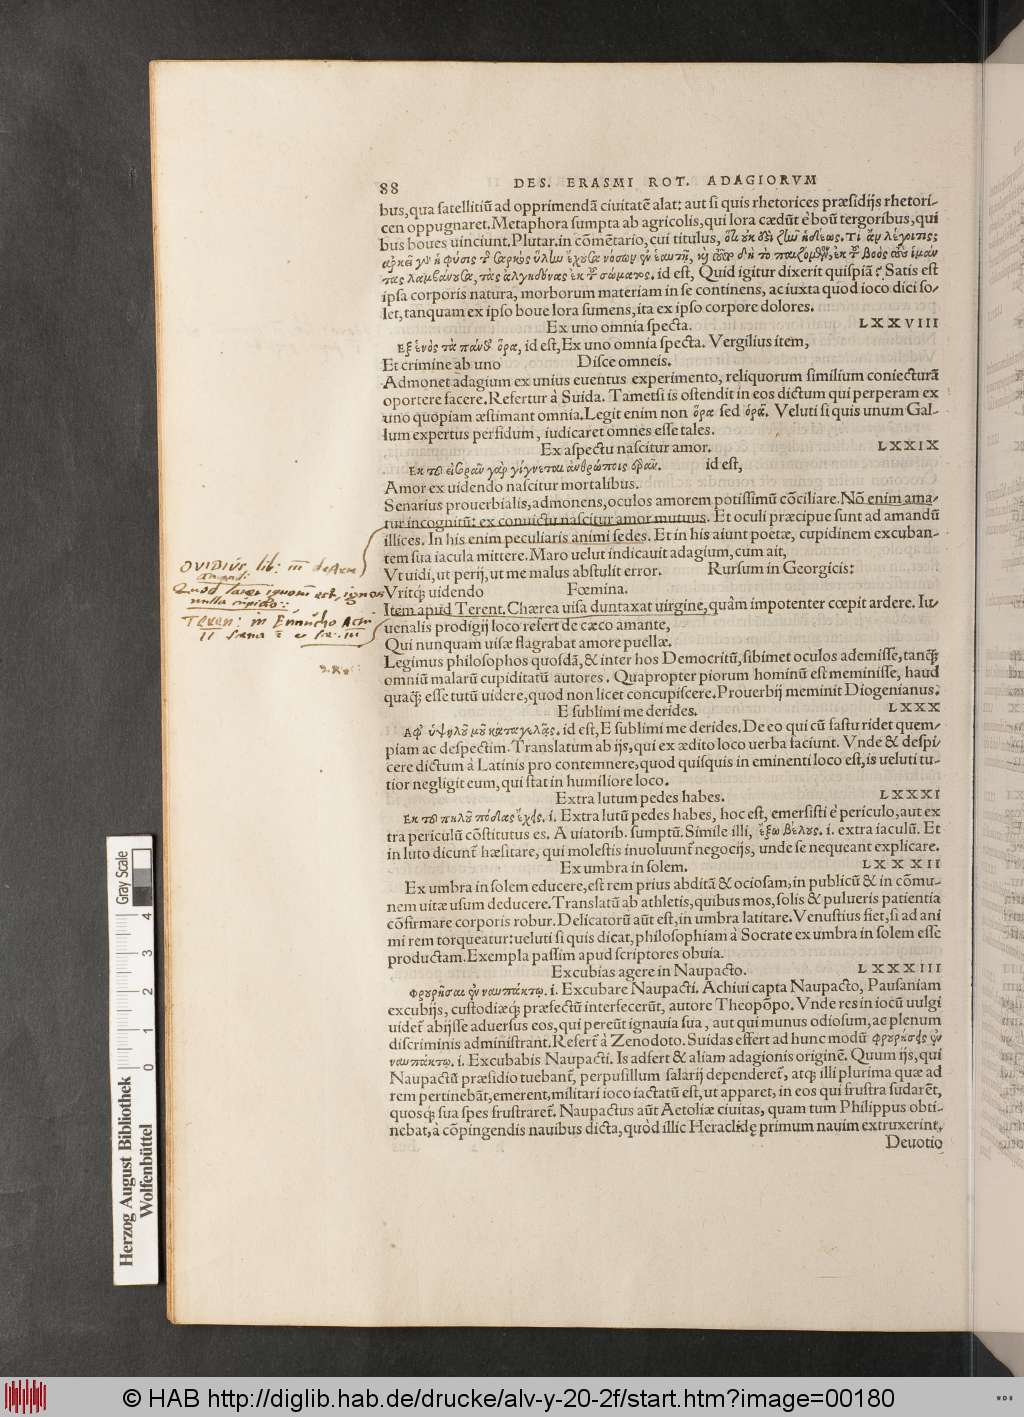 88 DES. ERASMI ROT. ADAGIORVM
bus, qua satellitiũ ad opprimendã ciuitatẽ alat: aut si quis rhetorices præsidijs rhetori-
cen oppugnaret. Metaphora sumpta ab agricolis, qui lora cædũt è boũ tergoribus, qui
bus boues uinciunt. Plutar. in cõmẽtario, cui titulus, ὅτι οὐκ δεῖ ζῆν ἡδέως. Τί ἂν λέγοι τις;
ἀρκεῖ γὰρ ἡ φύσις τ͂ σαρκὸς ὕλην ἔχουσα νόσων ἐν ἑαυτῇ, καὶ
τὰς λαμβάνουσα, τὰς ἀλγηδόνας ἐκ τ͂ σώματος. id est, Quid igitur dixerit quispiã? Satis est
ipsa corporis natura, morborum materiam in se continens, ac iuxta quod ioco dici so-
let, tanquam ex ipso boue lora sumens, ita ex ipso corpore dolores.
Ex uno omnia specta. LXXVIII
Εξ ἑνὸς τὰ πάνθ' ὅρα, id est, Ex uno omnia specta. Vergilius item,
Et crimine ab uno Disce omneis.
Admonet adagium ex unius euentus experimento, reliquorum similium coniecturã
oportere facere. Refertur à Suida. Tametsi is ostendit in eos dictum qui perperam ex
uno quopiam æstimant omnia. Legit enim non ὅρα sed ὁρᾷ. Veluti si quis unum Gal-
lum expertus perfidum, iudicaret omnes esse tales.
Ex aspectu nascitur amor. LXXIX
Εκ τοῦ εἰσορᾶν γὰρ γίγνεται ἀνθρώποις ἐρᾶν. id est,
Amor ex uidendo nascitur mortalibus.
Senarius prouerbialis, admonens, oculos amorem potissimũ cõciliare. Nõ enim ama-
tur incognitũ: ex conuictu nascitur amor mutuus. Et oculi præcipue sunt ad amandũ
illices. In his enim peculiaris animi sedes. Et in his aiunt poetæ, cupidinem excuban-
tem sua iacula mittere. Maro uelut indicauit adagium, cum ait,
Vt uidi, ut perij, ut me malus abstulit error. Rursum in Georgicis:
Vritq́; uidendo Fœmina.
Item apud Terent. Chærea uisa duntaxat uirgine, quàm impotenter cœpit ardere. Iu-
uenalis prodigij loco refert de cæco amante,
Qui nunquam uisæ flagrabat amore puellæ.
Legimus philosophos quosdã, & inter hos Democritũ, sibimet oculos ademisse, tanq̃;
omniũ malarũ cupiditatũ autores. Quapropter piorum hominũ est meminisse, haud
quaq̃; esse tutũ uidere, quod non licet concupiscere. Prouerbij meminit Diogenianus.
E sublimi me derides. LXXX
Αφ' ὑψηλοῦ μοῦ καταγελᾷς. id est, E sublimi me derides. De eo qui cũ fastu ridet quem-
piam ac despectim. Translatum ab ijs, qui ex ædito loco uerba faciunt. Vnde & despi-
cere dictum à Latinis pro contemnere, quod quisquis in eminenti loco est, is ueluti tu-
tior negligit eum, qui stat in humiliore loco.
Extra lutum pedes habes. LXXXI
Εκ τοῦ πηλοῦ πόδας ἔχεις. i. Extra lutũ pedes habes, hoc est, emersisti è periculo, aut ex
tra periculũ cõstitutus es. A uiatorib. sumptũ. Simile illi, ἔξω βέλους. i. extra iaculũ. Et
in luto dicunt̃ hæsitare, qui molestis inuoluunt̃ negocijs, unde se nequeant explicare.
Ex umbra in solem. LXXXII
Ex umbra in solem educere, est rem prius abditã & ociosam, in publicũ & in cõmu-
nem uitæ usum deducere. Translatũ ab athletis, quibus mos, solis & pulueris patientia
cõfirmare corporis robur. Delicatorũ aũt est, in umbra latitare. Venustius fiet, si ad ani
mi rem torqueatur: ueluti si quis dicat, philosophiam à Socrate ex umbra in solem esse
productam. Exempla passim apud scriptores obuia.
Excubias agere in Naupacto. LXXXIII
φρουρῆσαι ἐν ναυπάκτῳ. i. Excubare Naupacti. Achiui capta Naupacto, Pausaniam
excubijs, custodiæq́; præfectũ interfecerũt, autore Theopõpo. Vnde res in iocũ uulgi
uidet̃ abijsse aduersus eos, qui pereũt ignauia sua, aut qui munus odiosum, ac plenum
discriminis administrant. Refert̃ à Zenodoto. Suidas effert ad hunc modũ φρουρήσεις ἐν
ναυπάκτῳ. i. Excubabis Naupacti. Is adfert & aliam adagionis originẽ. Quum ijs, qui
Naupactũ præsidio tuebant̃, perpusillum salarij dependeret̃, atq́; illi plurima quæ ad
rem pertinebãt, emerent, militari ioco iactatũ est, ut apparet, in eos qui frustra sudarẽt,
quosq́; sua spes frustraret̃. Naupactus aũt Aetoliæ ciuitas, quam tum Philippus obti-
nebat, à cõpingendis nauibus dicta, quòd illic Heraclidę primum nauim extruxerint.
Deuotio
OVIDIUS, lib: III de Arte
amandi
Quod latet ignotũ est, ignoti
nulla cupido:
TEREN: in Eunucho Actu
II
Gray Scale
0 1 2 3 4
Herzog August Bibliothek
Wolfenbüttel
© HAB http://diglib.hab.de/drucke/alv-y-20-2f/start.htm?image=00180